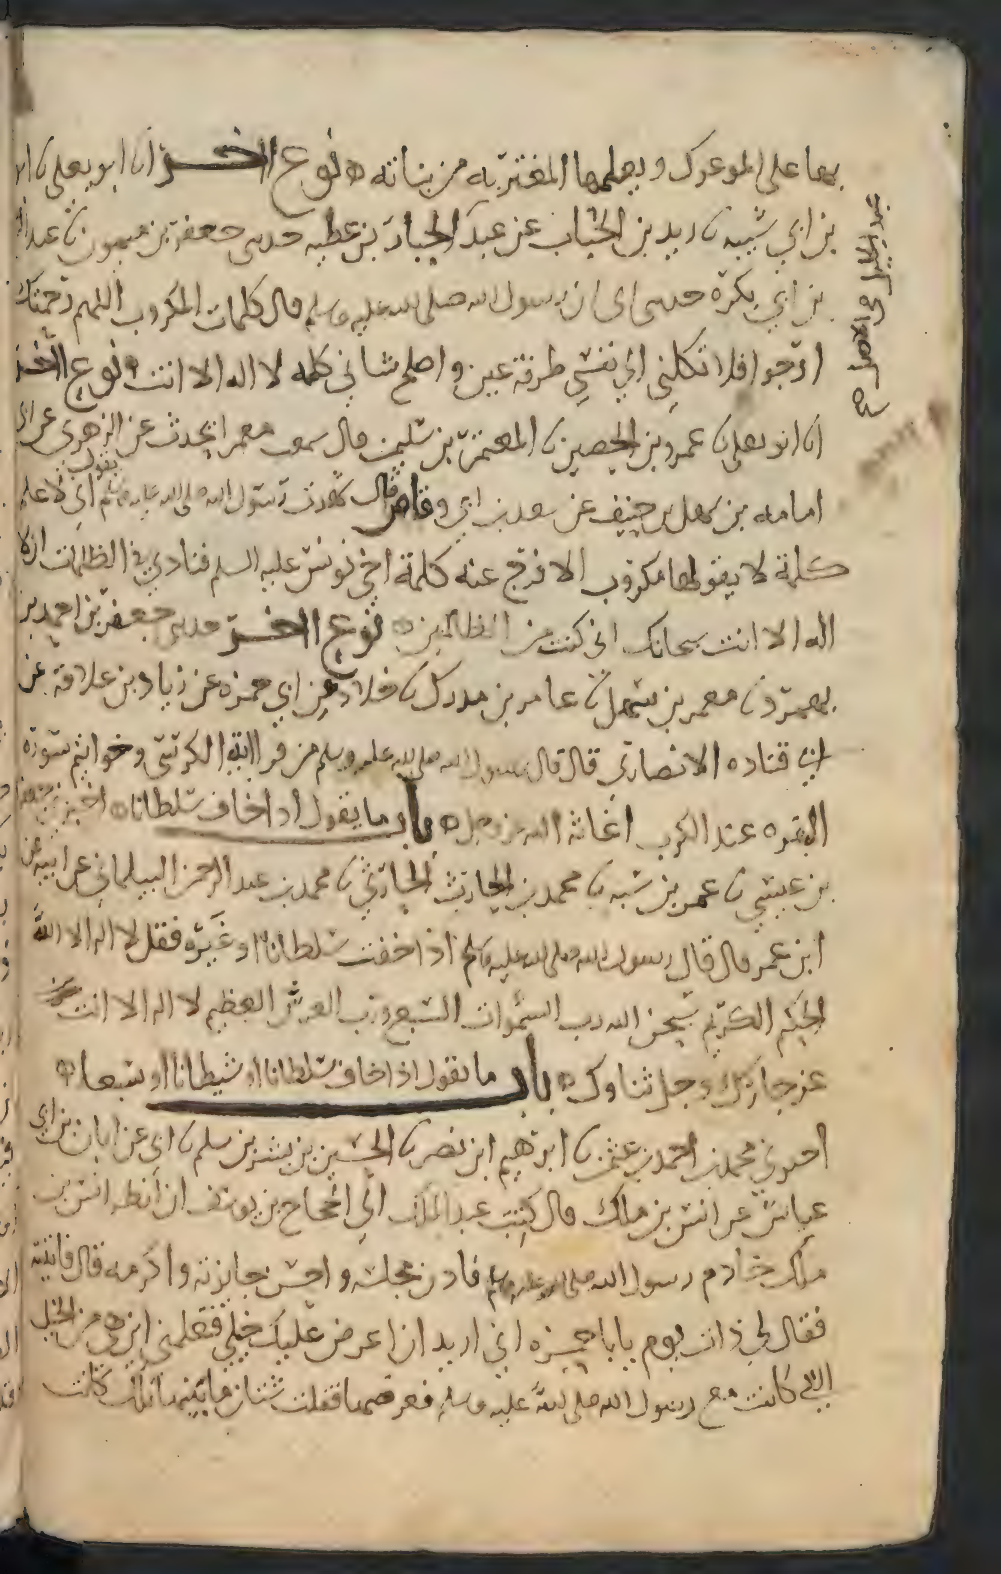 بها على الموعوك ويعلمها المغتربه من بناته ه نوع اخر انا ابو يعلى نا ابو
بن ابي شيبه نا زيد بن الحباب عن عبد الجبار بن عطيه حدىى جعفر بن ميمون نا عبد الر
بن ابي بكرة حدىى ابى ان رسول الله صلى الله عليه وسلم قال كلمات المكروب اللهم رحمتك
ارجوا فلا تكلني الي نفسي طرفة عين واصلح شاني كله لا اله الا انت ه نوع اخر
انا ابو يعلى نا عمرو بن الحصين نا المعتمر بن سليمن قال سمعت معمرا يحدث عن الزهرى عن ابى
امامه بن سهل بن حنيف عن سعد بن ابي وقاص قال سمعت رسول الله صلى الله عليه وسلم يقول اني لاعلم
كلمة لا يقولها مكروب الا فرج عنه كلمة اخي يونس عليه السلم فنادي في الظلمات ان لا
اله الا انت سبحانك انى كنت من الظالمين ه نوع اخر حدىى جعفر بن احمد بن
بهمرد نا معمر بن سهل نا عامر بن مدرك نا خلاد عن ابي حمزه عن زياد بن علاقه عن
ابي قتاده الانصاري قال قال رسول الله صلى الله عليه وسلم من قرا ايه الكرسي وخواتيم سورة
البقره عند الكرب اغاثه الله عز وجل ه باب ما يقول اذا خاف سلطانا ه اخبرني جعفر
بن عيسي نا عمر بن شبه نا محمد بن الحارث الحارثي نا محمد بن عبد الرحمن البيلماني عن ابيه عن
ابن عمر قال قال رسول الله صلى الله عليه وسلم اذا خفت سلطانا او غيره فقل لا اله الا الله
الحليم الكريم سبحن الله رب السموات السبع ورب العرش العظيم لا اله الا انت
عز جارك وجل ثناوك ه باب ما يقول اذا خاف سلطانا او شيطانا او سبعا ه
اخبرني محمد بن احمد بن عثمن نا ابرهيم ابن نصر نا الحسين بن بشر بن سلم نا ابي عن ابان بن ابي
عياش عن انس بن ملك قال كتب عبد الملك الي الحجاج بن يوسف ان انظر انس بن
ملك خادم رسول الله صلى الله عليه وسلم فادن مجلسه واحسن جايزته واكرمه قال فاتيته
فقال لي ذات يوم يا با حمزه اني اريد ان اعرض عليك خيلي فتعلمني اين هي من الخيل
التي كانت مع رسول الله صلى الله عليه وسلم فعرضها فقلت شتان ما بينهما تلك كانت
عبد الجليل فى الاصل صح